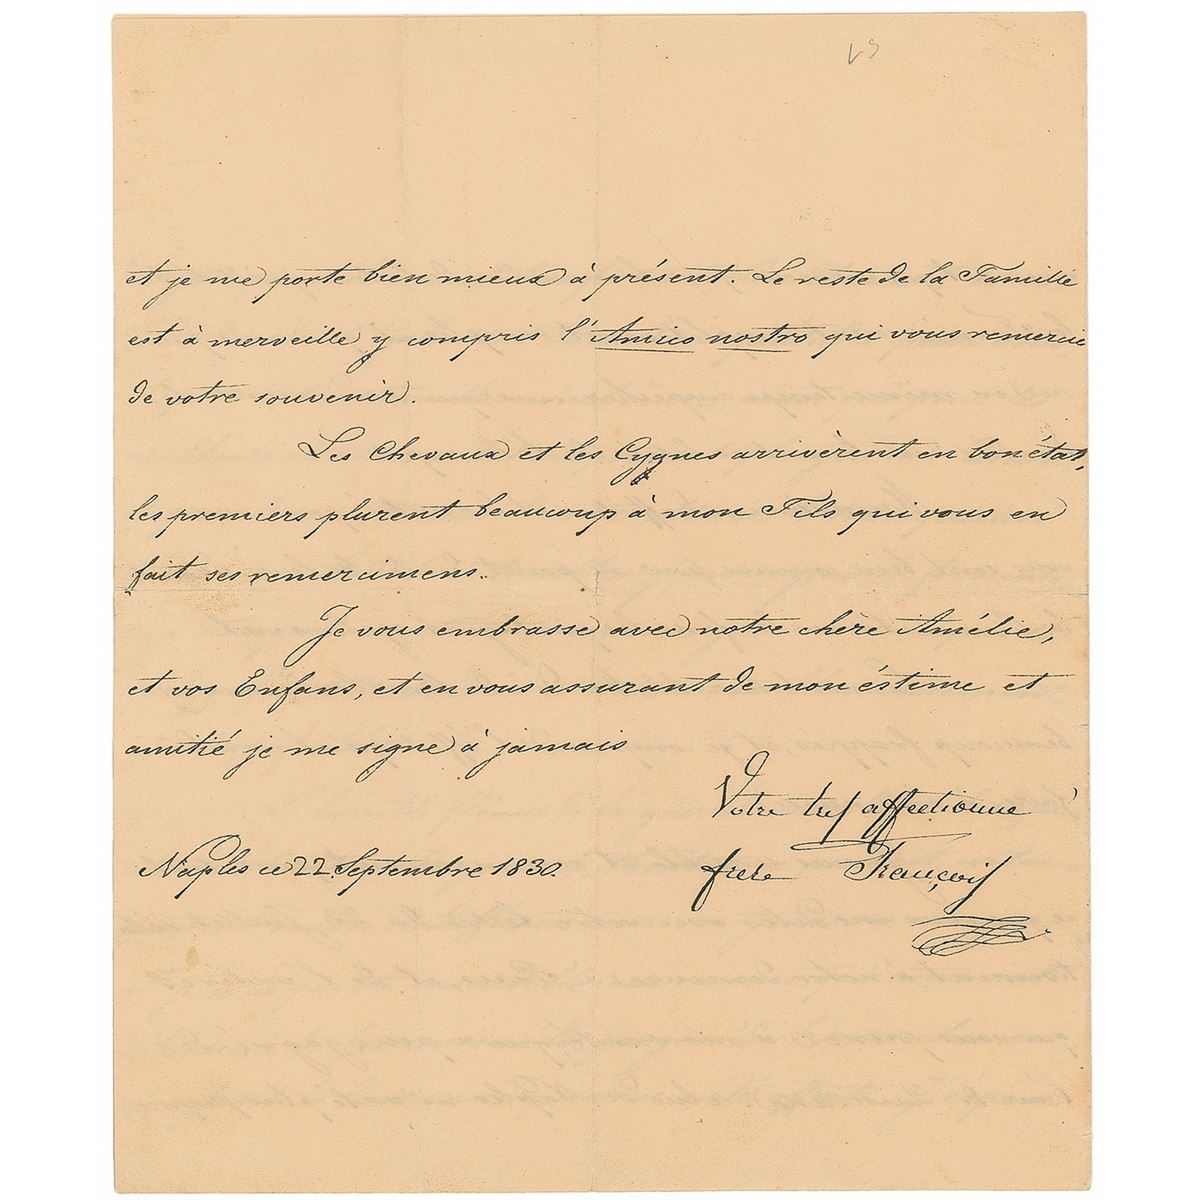 et je me porte bien mieux à présent. Le reste de la Famille
est à merveille y compris l'Amico nostro qui vous remercie
de votre souvenir.
Les Chevaux et les Cygnes arrivèrent en bon état,
les premiers plurent beaucoup à mon Fils qui vous en
fait ses remercimens.
Je vous embrasse avec notre chère Amélie,
et vos Enfans, et en vous assurant de mon éstime et
amitié je me signe à jamais
Votre tres affectionné
Naples ce 22. Septembre 1830.
frere François